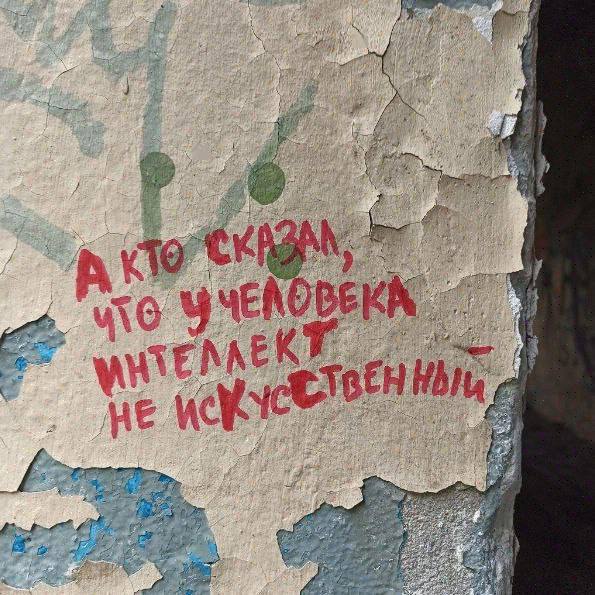 А КТО СКАЗАЛ,
ЧТО У ЧЕЛОВЕКА
ИНТЕЛЛЕКТ
НЕ ИСКУССТВЕННЫЙ